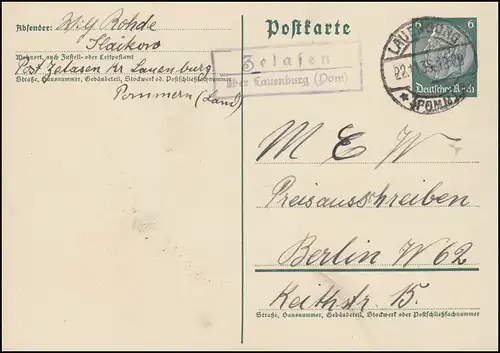 Absender: Wilh Rohde
Slaikow
Wohnort, auch Zustell- oder Leitpostamt
Post Zelasen Kr Lauenburg
Straße, Hausnummer, Gebäudeteil, Stockwerk od. Postschließfachnummer
Pommern (Land)
Postkarte
Zelasen
über Lauenburg (Pom)
LAUENBURG
(POMM)
6
Deutsches Reich
M E W
Preisausschreiben
Berlin W 62
Keithstr 15.
Straße, Hausnummer, Gebäudeteil, Stockwerk oder Postschließfachnummer